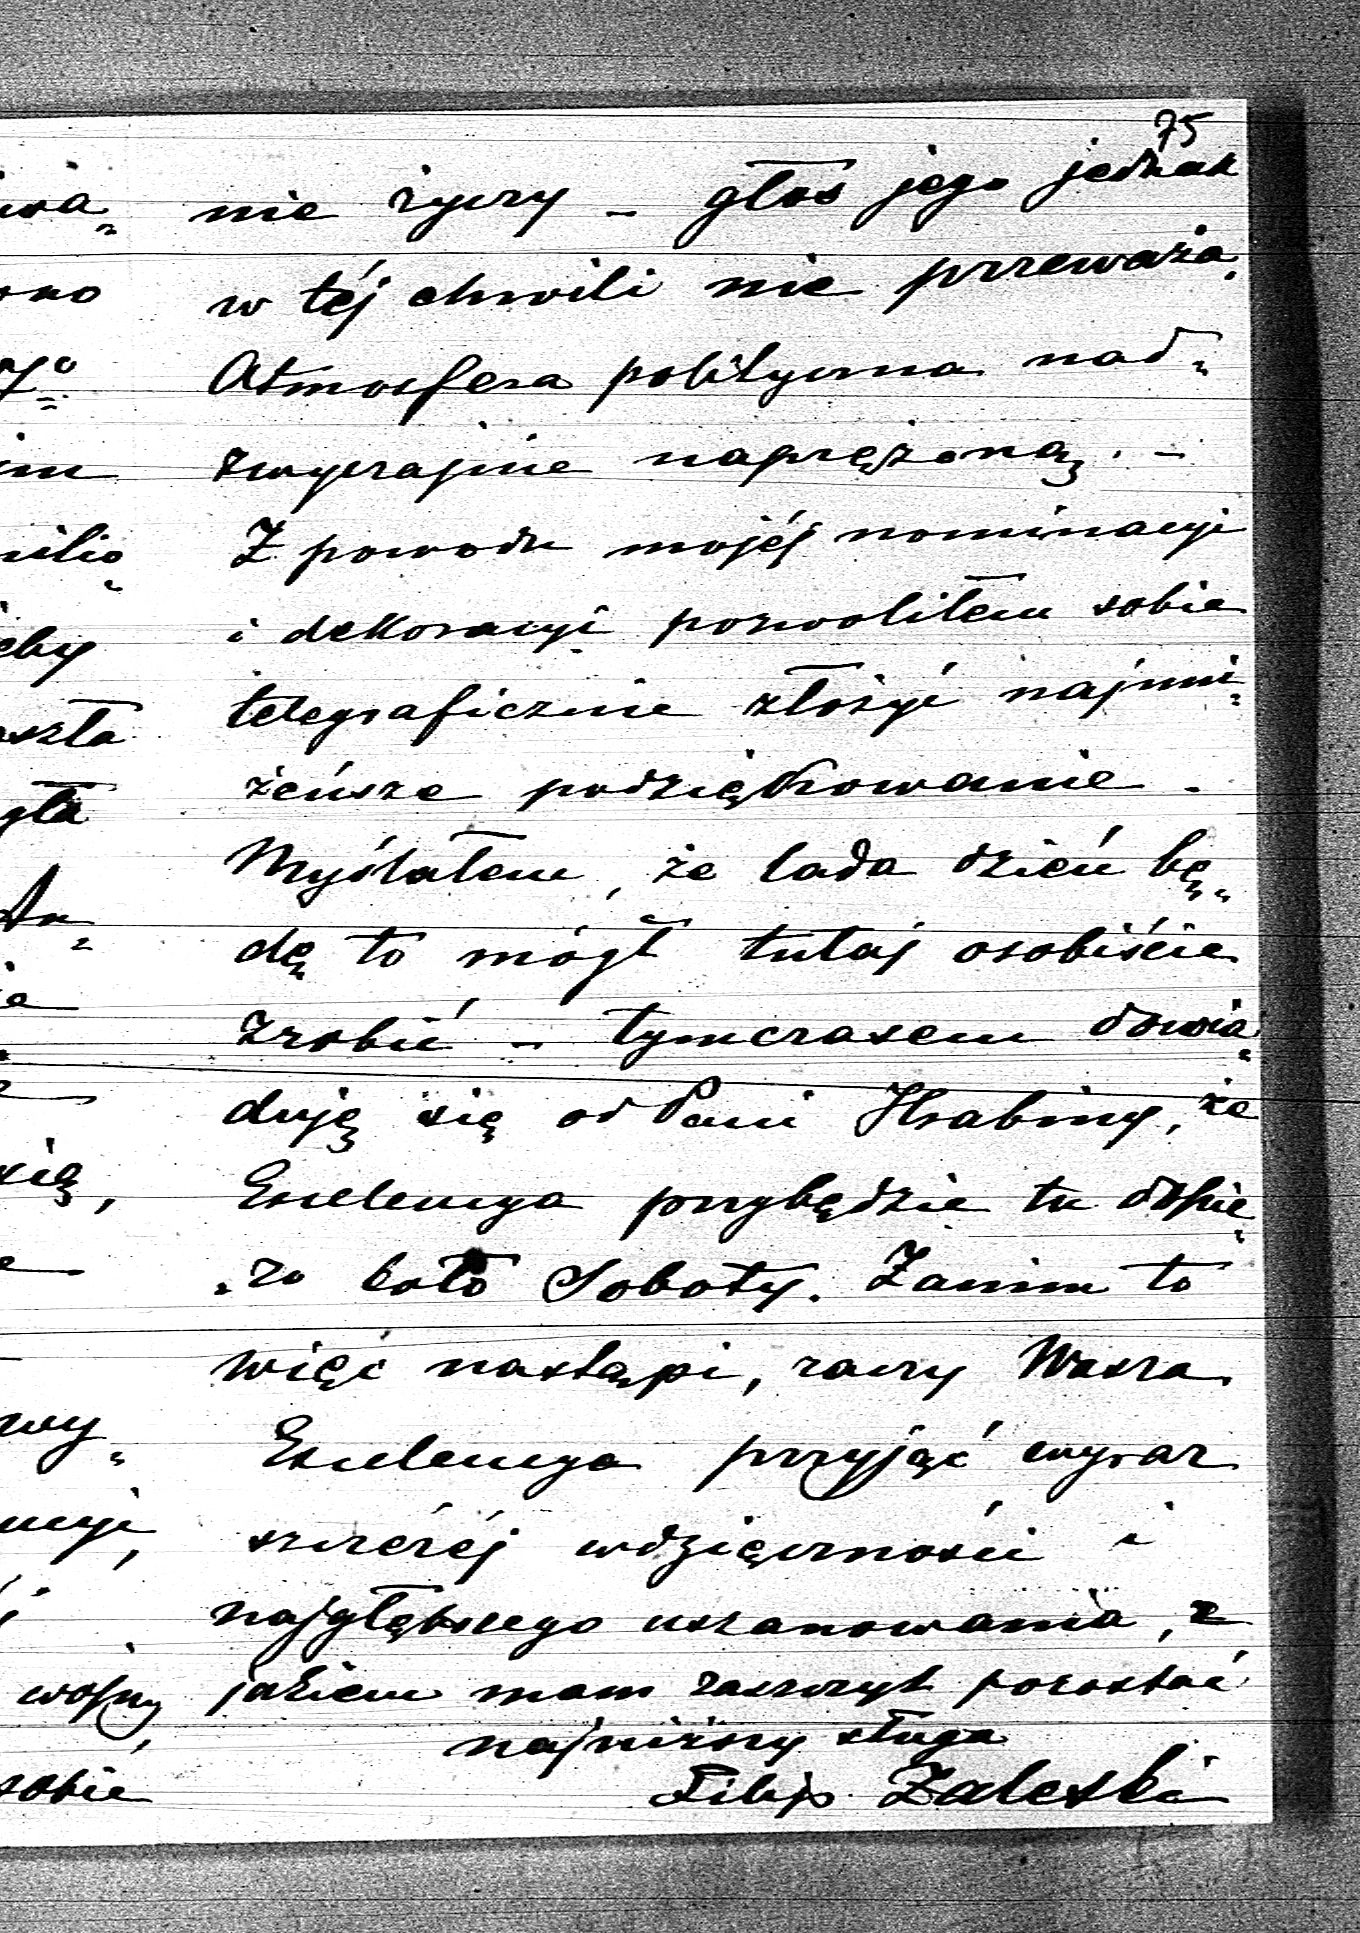 75
nie życzy – głos jego jednak
w téj chwili nie przeważa.
Atmosfera polityczna nad„
zwyczajnie naprężoną. –
Z powodu mojéj nominacyi
i dekoracyi pozwoliłem sobie
telegraficznie złożyć najuni„
żeńsze podziękowanie.
Myślałem, że lada dzień bę„
dę to mógł tutaj osobiście
zrobić – tymczasem dowia„
duję się od Pani Hrabiny, że
Excelencya przybędzie tu dopie„
„ro koło Soboty. Zanim to
więc nastąpi, raczy Wasza
Excelencya przyjąć wyraz
szczeréj wdzięczności i
najgłębszego uszanowania, z
jakiem mam zaszczyt pozostać
najniższy sługa
Filip Zaleski
wojny,
sobie